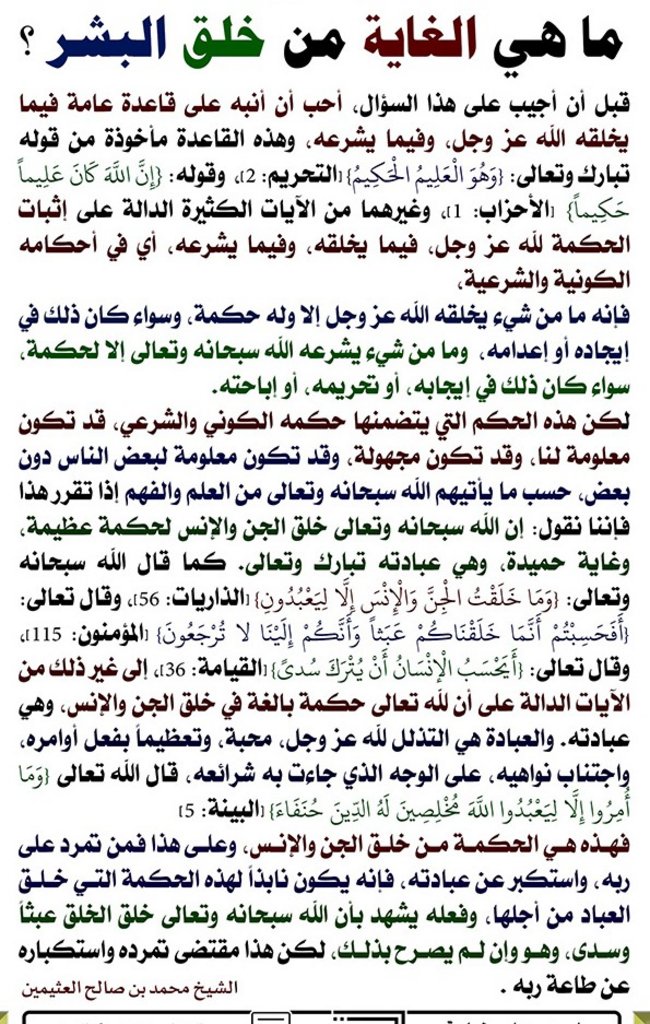 ما هي الغاية من خلق البشر ؟
قبل أن أجيب على هذا السؤال، أحب أن أنبه على قاعدة عامة فيما
يخلقه الله عز وجل، وفيما يشرعه، وهذه القاعدة مأخوذة من قوله
تبارك وتعالى: {وَهُوَ الْعَلِيمُ الْحَكِيمُ} [التحريم: 2]، وقوله: {إِنَّ اللَّهَ كَانَ عَلِيماً
حَكِيماً} [الأحزاب: 1]، وغيرهما من الآيات الكثيرة الدالة على إثبات
الحكمة لله عز وجل، فيما يخلقه، وفيما يشرعه، أي في أحكامه
الكونية والشرعية،
فإنه ما من شيء يخلقه الله عز وجل إلا وله حكمة، وسواء كان ذلك في
إيجاده أو إعدامه، وما من شيء يشرعه الله سبحانه وتعالى إلا لحكمة،
سواء كان ذلك في إيجابه، أو تحريمه، أو إباحته.
لكن هذه الحكم التي يتضمنها حكمه الكوني والشرعي، قد تكون
معلومة لنا، وقد تكون مجهولة، وقد تكون معلومة لبعض الناس دون
بعض، حسب ما يأتيهم الله سبحانه وتعالى من العلم والفهم إذا تقرر هذا
فإننا نقول: إن الله سبحانه وتعالى خلق الجن والإنس لحكمة عظيمة،
وغاية حميدة، وهي عبادته تبارك وتعالى. كما قال الله سبحانه
وتعالى: {وَمَا خَلَقْتُ الْجِنَّ وَالْإِنْسَ إِلَّا لِيَعْبُدُونِ} [الذاريات: 56]، وقال تعالى:
{أَفَحَسِبْتُمْ أَنَّمَا خَلَقْنَاكُمْ عَبَثاً وَأَنَّكُمْ إِلَيْنَا لا تُرْجَعُونَ} [المؤمنون: 115]،
وقال تعالى: {أَيَحْسَبُ الْإِنْسَانُ أَنْ يُتْرَكَ سُدىً} [القيامة: 36]، إلى غير ذلك من
الآيات الدالة على أن لله تعالى حكمة بالغة في خلق الجن والإنس، وهي
عبادته. والعبادة هي التذلل لله عز وجل، محبة، وتعظيماً بفعل أوامره،
واجتناب نواهيه، على الوجه الذي جاءت به شرائعه، قال الله تعالى {وَمَا
أُمِرُوا إِلَّا لِيَعْبُدُوا اللَّهَ مُخْلِصِينَ لَهُ الدِّينَ حُنَفَاءَ} [البينة: 5]
فهذه هي الحكمة من خلق الجن والإنس، وعلى هذا فمن تمرد على
ربه، واستكبر عن عبادته، فإنه يكون نابذاً لهذه الحكمة التي خلق
العباد من أجلها، وفعله يشهد بأن الله سبحانه وتعالى خلق الخلق عبثاً
وسدى، وهو وإن لم يصرح بذلك، لكن هذا مقتضى تمرده واستكباره
عن طاعة ربه . الشيخ محمد بن صالح العثيمين